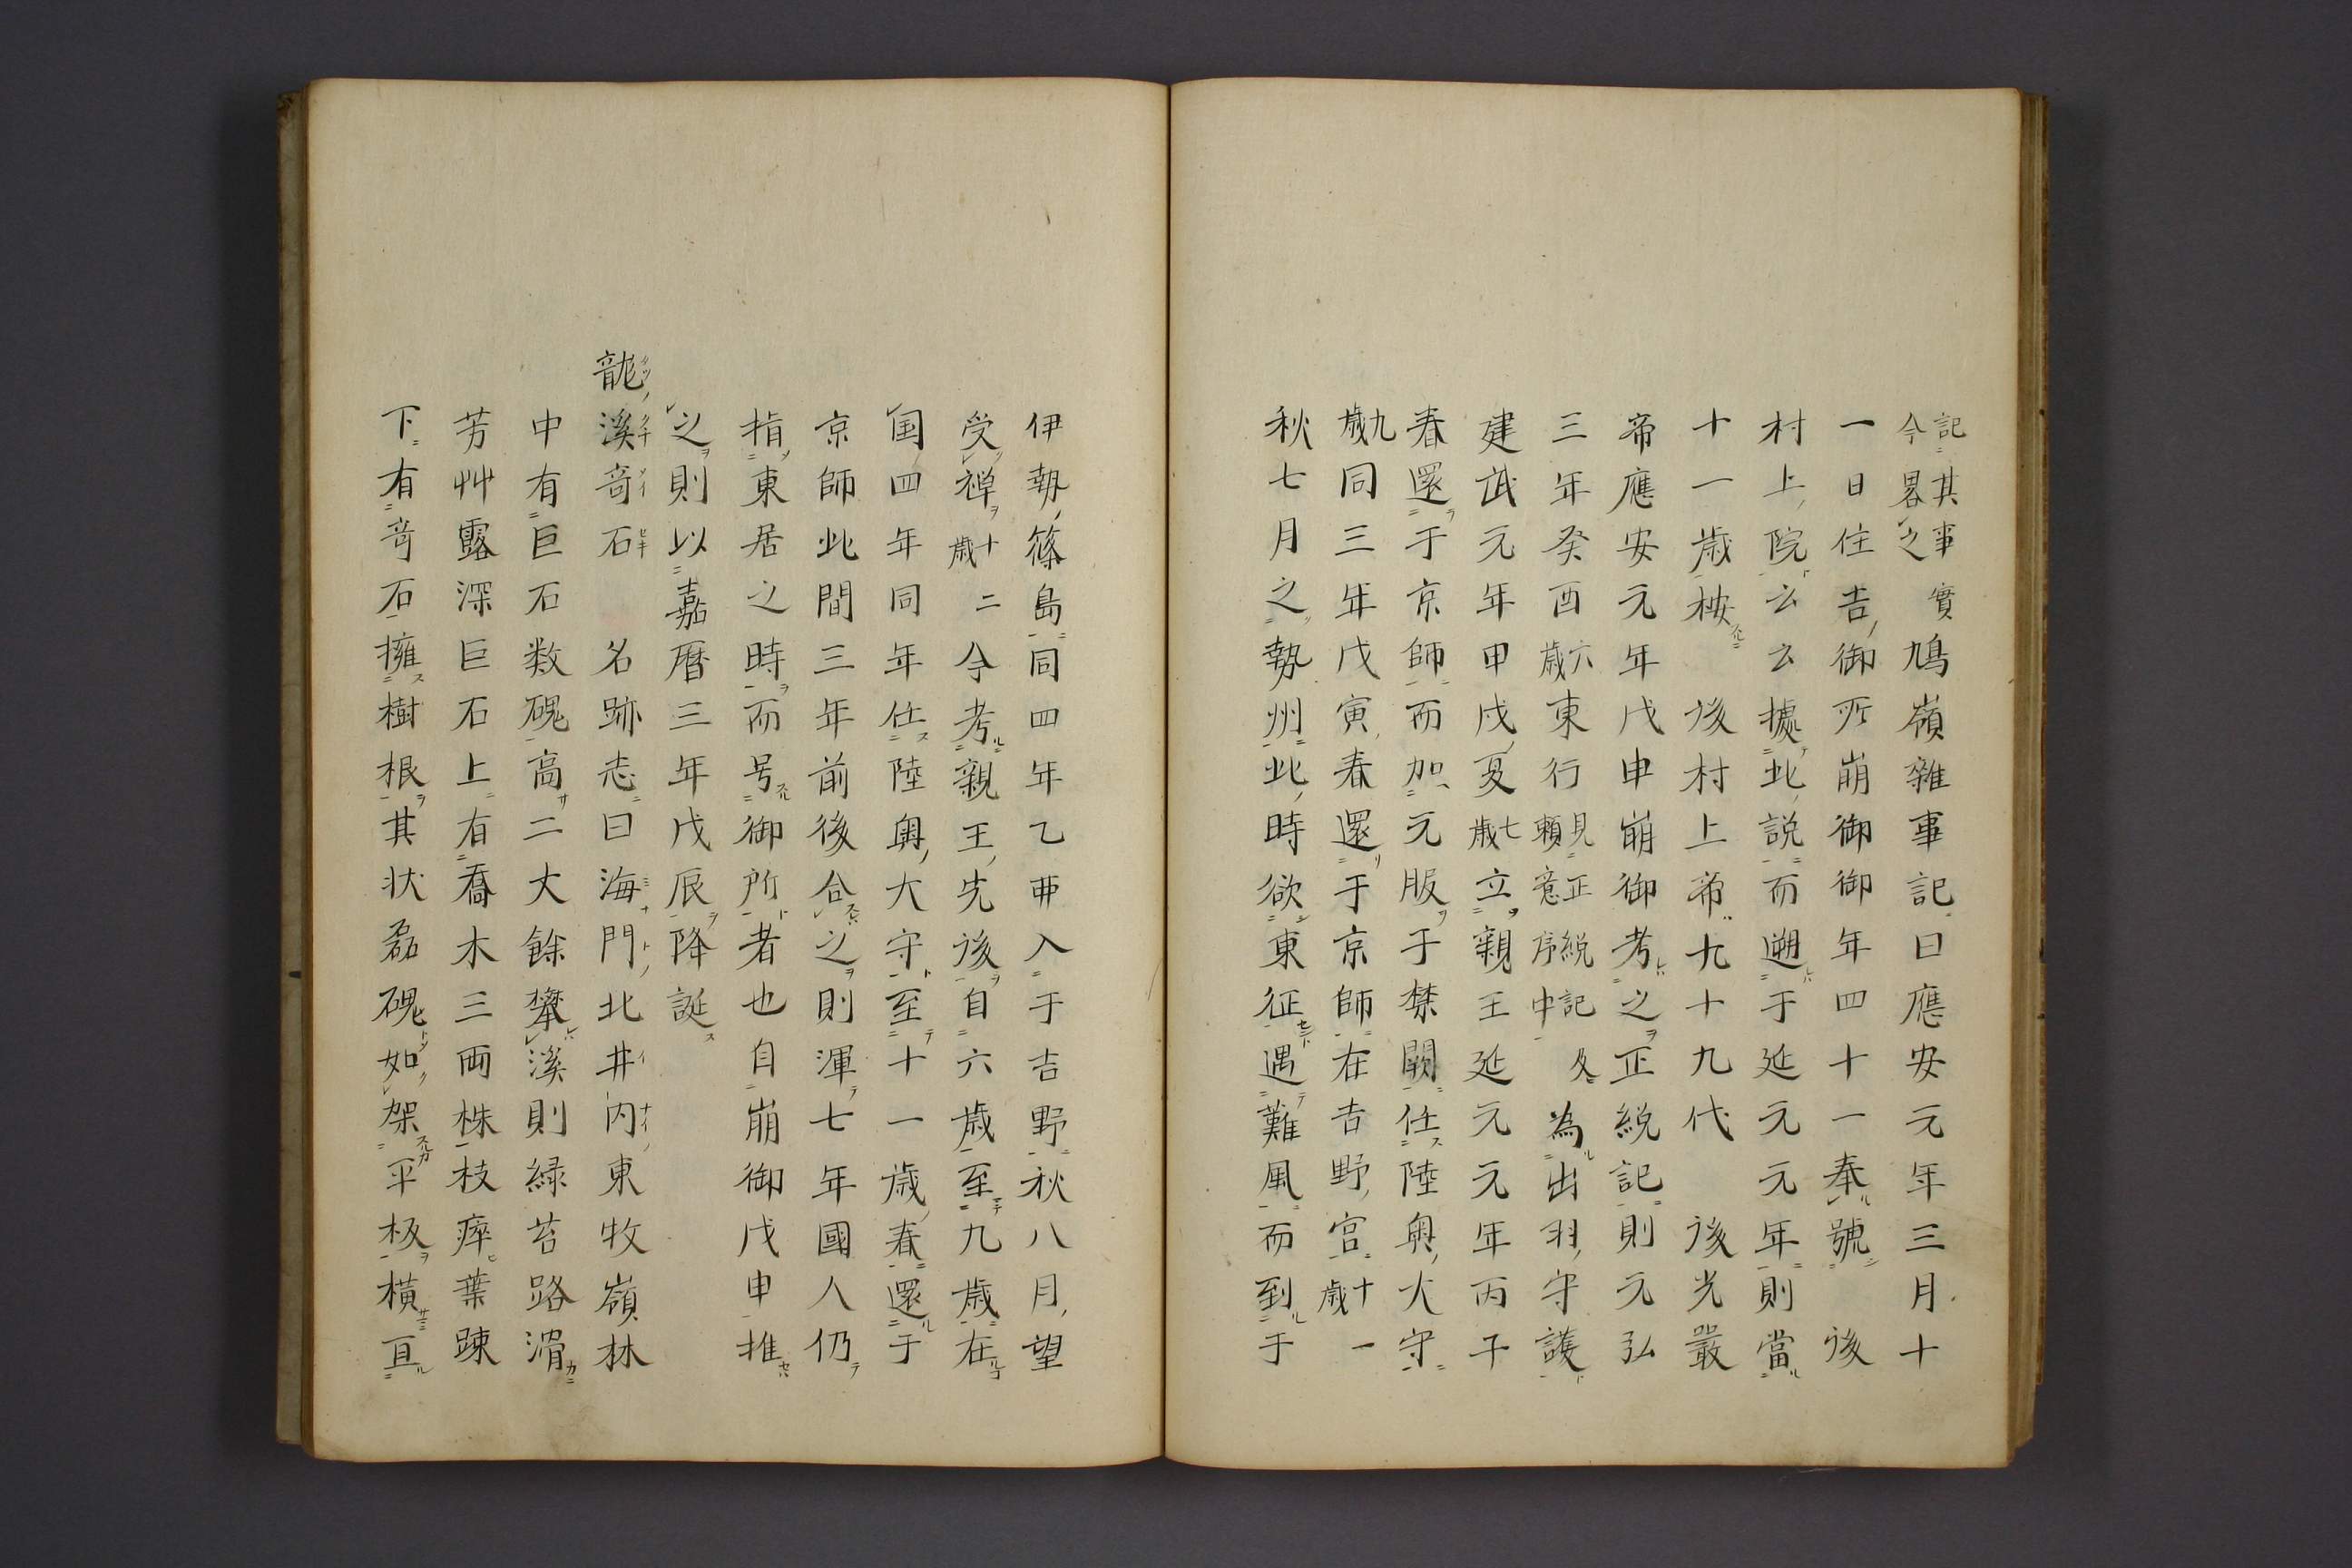 記其事實今畧之鳩嶺雜事記曰應安元年三月十
一日住吉御所崩御御年四十一奉號　後
村上院云云據此説而遡于延元元年則當
十一歳桉　後村上帝九十九代　後光嚴
帝應安元年戊申崩御考之正統記則元弘
三年癸酉六歳東行見正統記及頼意序中為出羽守護
建武元年甲戌夏七歳立親王延元元年丙子
春還于京師而加元服于禁闕任陸奥大守
九歳同三年戊寅春還于京師在吉野宮十一歳
秋七月之勢州此時欲東征遇難風而到于
伊勢篠島同四年乙亜入于吉野秋八月望
受禅十二歳今考親王先後自六歳至九歳在
國四年同年任陸奥大守至十一歳春還于
京師此間三年前後合之則渾七年國人仍
指東居之時而号御所者也自崩御戊申推
之則以嘉暦三年戊辰降誕
龍溪竒石　名跡志曰海門北井内東牧嶺林
中有巨石数磈高二丈餘攀溪則緑苔路滑
芳艸露深巨石上有喬木三両株枝瘁葉踈
下有竒石擁樹根其状磊磈如架平板横亘